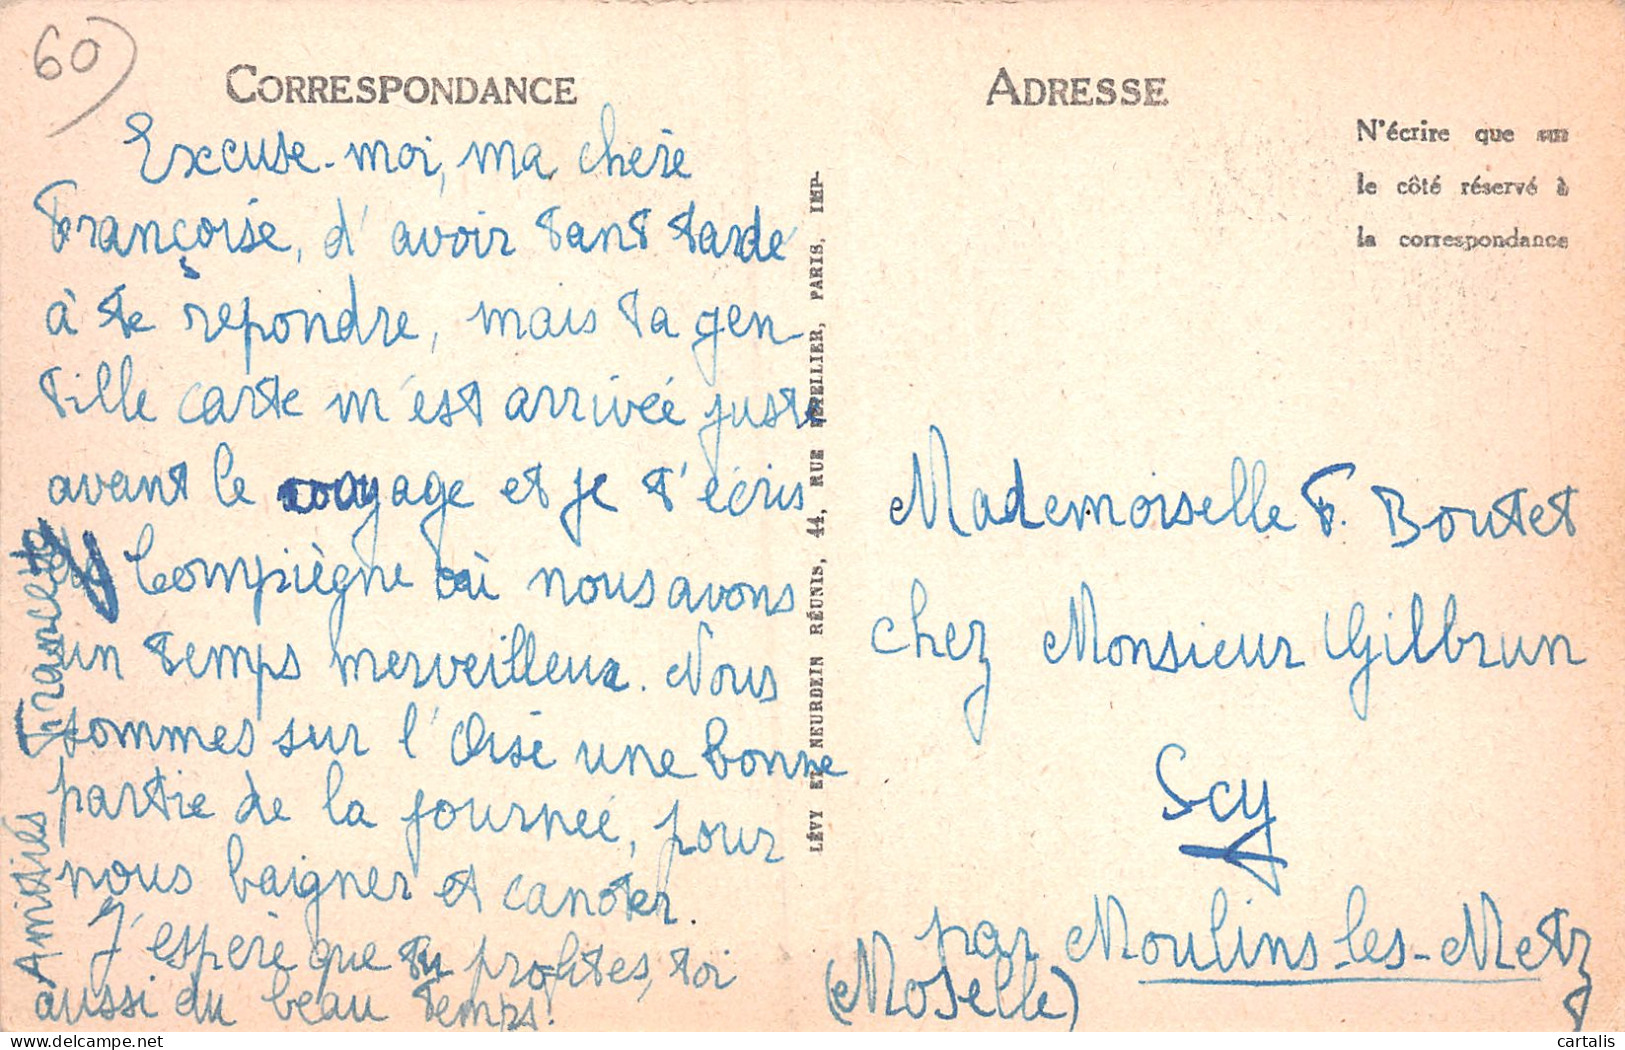 60
CORRESPONDANCE
Excuse-moi, ma chère
Françoise, d'avoir tant tardé
à te répondre, mais ta gen-
tille carte m'est arrivée juste
avant le voyage et je t'écris
Compiègne où nous avons
un temps merveilleux. Nous
sommes sur l'Oise une bonne
partie de la journée, pour
nous baigner et canoter.
J'espère que tu profites, toi
aussi du beau temps!
Amitiés
LÉVY ET NEURDEIN RÉUNIS, 44, RUE LETELLIER, PARIS, IMP.
ADRESSE
N'écrire que sur
le côté réservé à
la correspondance
Mademoiselle F. Boutet
chez Monsieur Gilbrun
Scy
par Moulins-les-Metz
(Moselle)
cartalis
delcampe.net